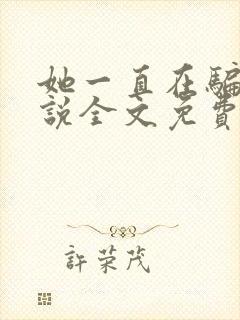 她一直在騙
說全文免費
許荣茂